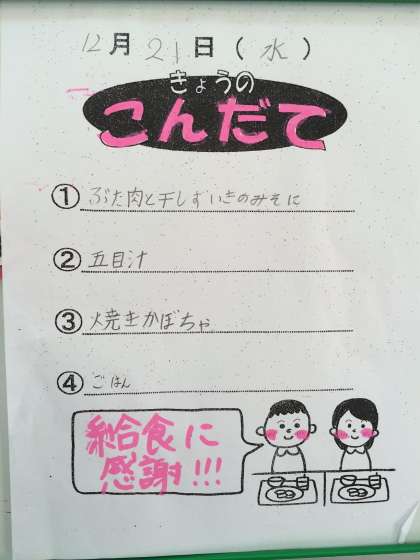 12月21日(水)
きょうの
こんだて
① ぶた肉と干しずいきのみそに
② 五目汁
③ 焼きかぼちゃ
④ ごはん
給食に
感謝!!!